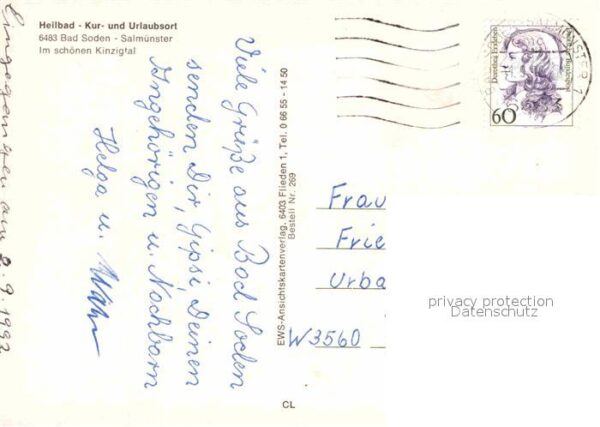 Heilbad - Kur- und Urlaubsort
6483 Bad Soden - Salmünster
Im schönen Kinzigtal
Eingegangen am 2.9.1992
Viele Grüße aus Bad Soden
senden Dir, Gipsi, Deinen
Angehörigen u. Nachbarn
Helga u.
EWS-Ansichtskartenverlag, 6403 Flieden 1, Tel. 0 66 55 - 14 50
Bestell Nr. 269
CL
60
Frau
Frie
Urba
W3560
privacy protection
Datenschutz